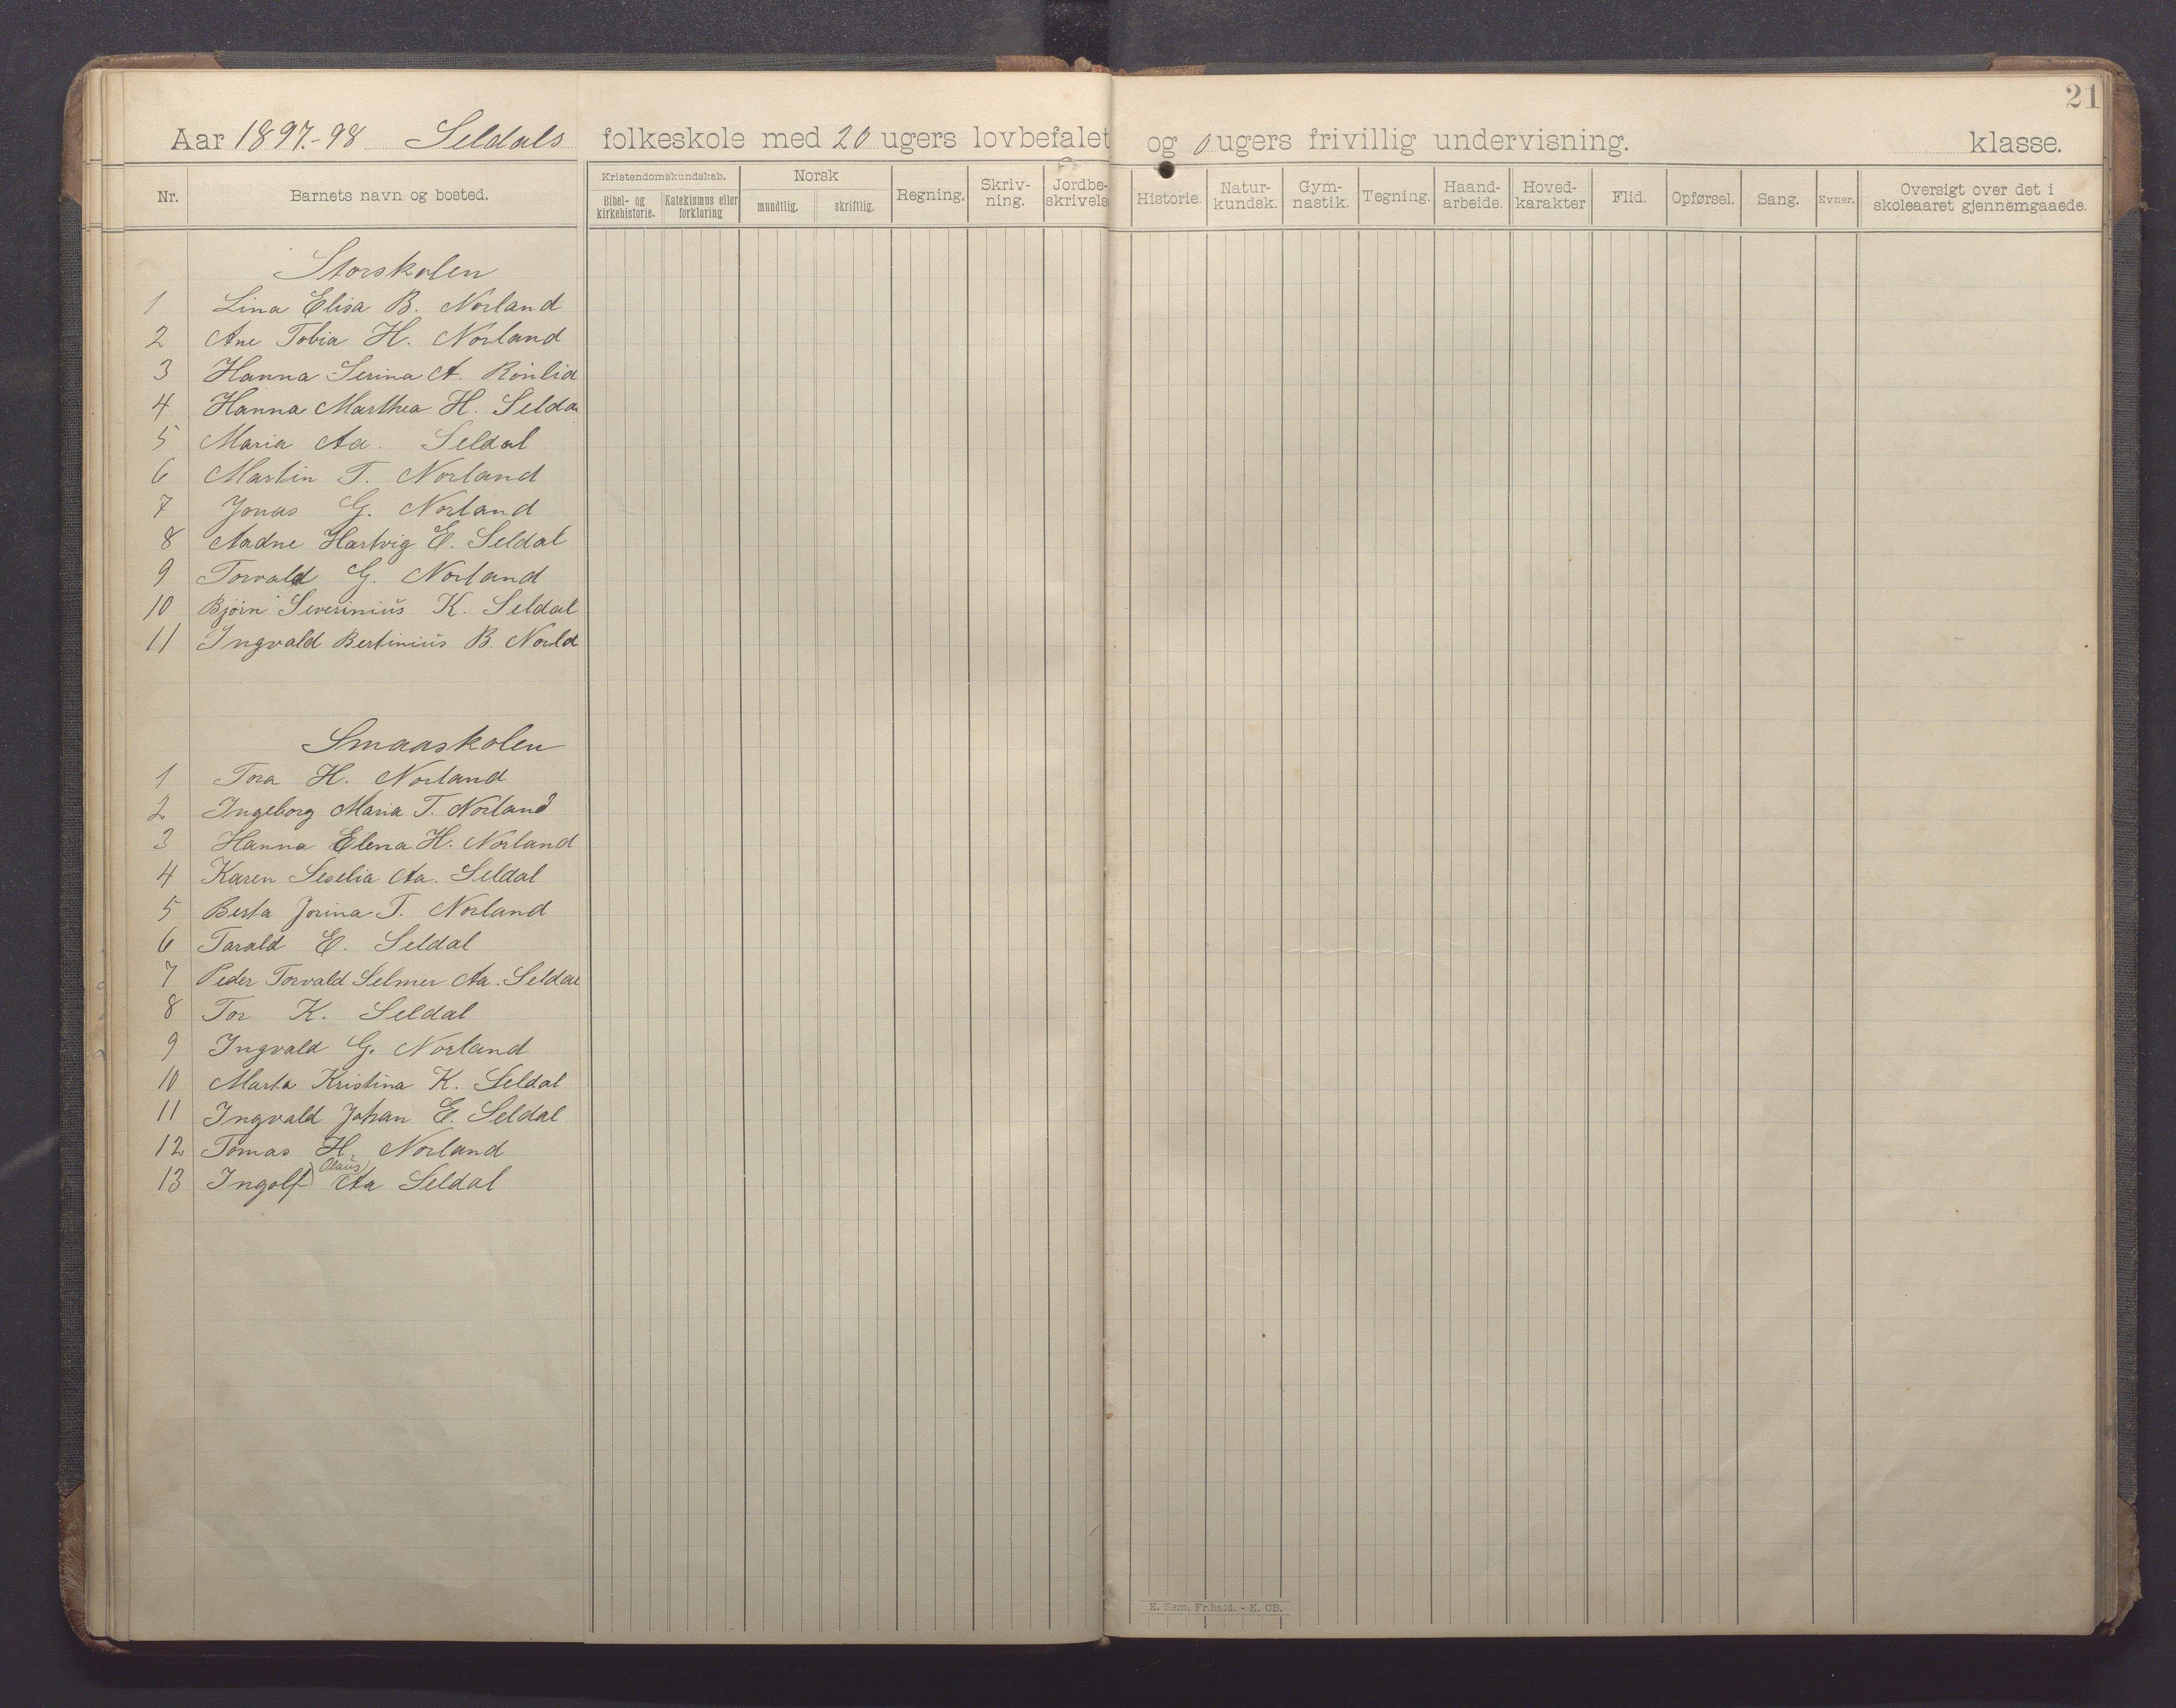 21
Aar 1897.-98 Seldals folkeskole med 20 ugers lovbefalet og 0 ugers frivillig undervisning. klasse.
Nr. Barnets navn og bosted. Kristendomskundskab. Bibel- og kirkehistorie. Katekismus eller forklaring Norsk mundtlig. skriftlig. Regning. Skriv-ning. Jordbe-skrivels Historie. Natur-kundsk. Gym-nastik. Tegning. Haand-arbeide. Hoved-karakter Flid. Opførsel. Sang. Evner. Oversigt over det i skoleaaret gjennemgaaede.
Storskolen
1 Lina Elisa B. Norland
2 Ane Tobia H. Norland
3 Hanna Serina A. Rönlid
4 Hanna Marthea H. Selda
5 Maria Aa. Seldal
6 Martin T. Norland
7 Jonas G. Norland
8 Aadne Hartvig E. Seldal
9 Torvald G. Norland
10 Björn Severinius K. Seldal
11 Ingvald Bertinius B. Norld
Smaaskolen
1 Tora H. Norland
2 Ingeborg Maria T. Norland
3 Hanna Elena H. Norland
4 Karen Seselia Aa. Seldal
5 Berta Jorina T. Norland
6 Tarald E. Seldal
7 Peder Torvald Selmer Aa. Seldal
8 Tor K. Seldal
9 Ingvald G. Norland
10 Marta Kristina K. Seldal
11 Ingvald Johan E. Seldal
12 Tomas H. Norland
Olaus
13 Ingolf Aa Seldal
E. Sem, Fr.hald. - E. CB.